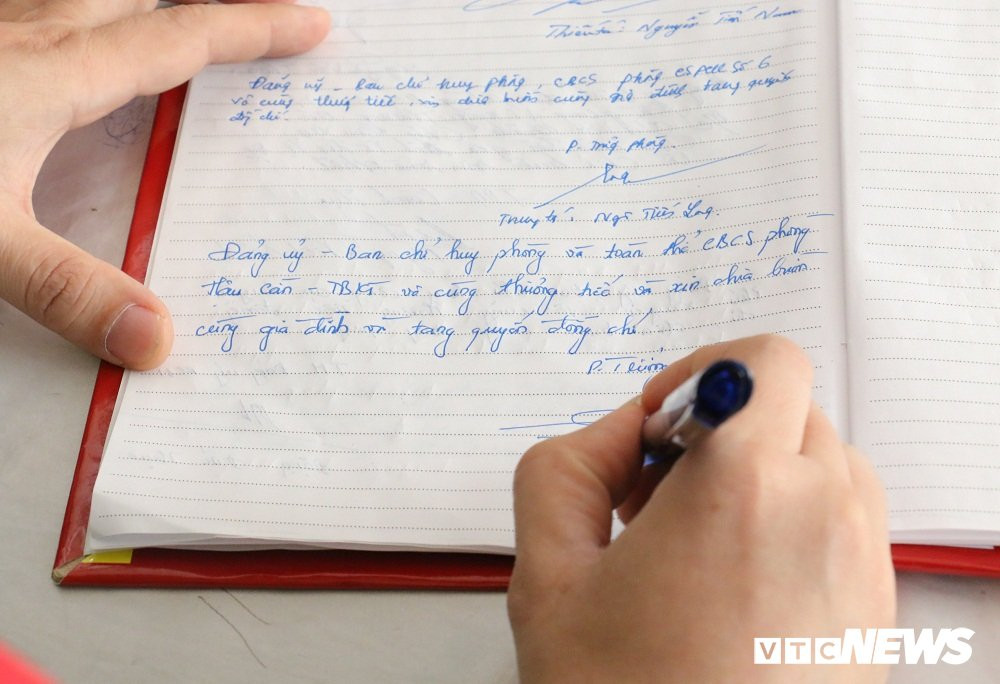 Thiếu tá: Nguyễn Tiến Nam
Đảng uỷ - Ban chỉ huy phòng, CBCS phòng CSPCCC Số 6
vô cùng thương tiết, xin chia buồn cùng gia đình tang quyến
đồng chí.
P. Trưởng phòng
Trung tá: Ngô Tiến
Đảng uỷ - Ban chỉ huy phòng và toàn thể CBCS phòng
Hậu cần - TBKT vô cùng thương tiếc và xin chia buồn
cùng gia đình và tang quyến đồng chí.
P. Trưởn
VTC NEWS